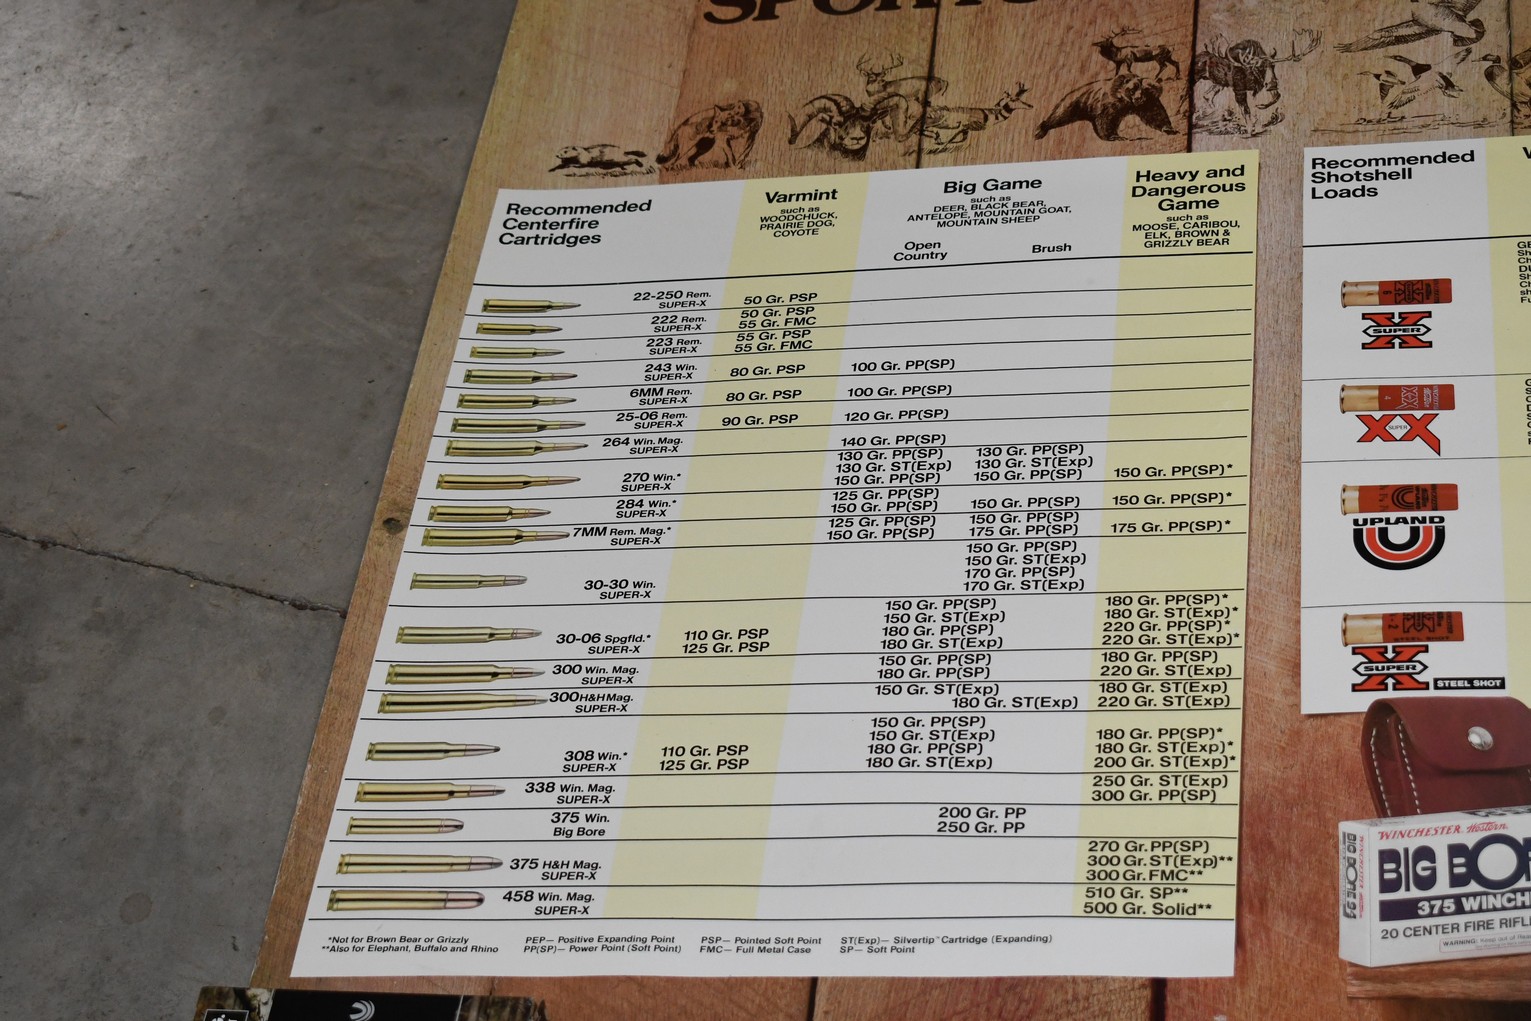 SPORTS
Recommended
Centerfire
Cartridges
Varmint
such as
WOODCHUCK,
PRAIRIE DOG,
COYOTE
Big Game
such as
DEER, BLACK BEAR,
ANTELOPE, MOUNTAIN GOAT,
MOUNTAIN SHEEP
Open
Country
Brush
Heavy and
Dangerous
Game
such as
MOOSE, CARIBOU,
ELK, BROWN &
GRIZZLY BEAR
22-250 Rem.
SUPER-X
50 Gr. PSP
222 Rem.
SUPER-X
50 Gr. PSP
55 Gr. FMC
223 Rem.
SUPER-X
55 Gr. PSP
55 Gr. FMC
243 Win.
SUPER-X
80 Gr. PSP
100 Gr. PP(SP)
6MM Rem.
SUPER-X
80 Gr. PSP
100 Gr. PP(SP)
25-06 Rem.
SUPER-X
90 Gr. PSP
120 Gr. PP(SP)
264 Win. Mag.
SUPER-X
140 Gr. PP(SP)
270 Win.*
SUPER-X
130 Gr. PP(SP)
130 Gr. ST(Exp)
150 Gr. PP(SP)
130 Gr. PP(SP)
130 Gr. ST(Exp)
150 Gr. PP(SP)
150 Gr. PP(SP)*
284 Win.*
SUPER-X
125 Gr. PP(SP)
150 Gr. PP(SP)
150 Gr. PP(SP)
150 Gr. PP(SP)*
7MM Rem. Mag.*
SUPER-X
125 Gr. PP(SP)
150 Gr. PP(SP)
150 Gr. PP(SP)
175 Gr. PP(SP)
175 Gr. PP(SP)*
30-30 Win.
SUPER-X
150 Gr. PP(SP)
150 Gr. ST(Exp)
170 Gr. PP(SP)
170 Gr. ST(Exp)
30-06 Spgfld.*
SUPER-X
110 Gr. PSP
125 Gr. PSP
150 Gr. PP(SP)
150 Gr. ST(Exp)
180 Gr. PP(SP)
180 Gr. ST(Exp)
180 Gr. PP(SP)*
180 Gr. ST(Exp)*
220 Gr. PP(SP)*
220 Gr. ST(Exp)*
300 Win. Mag.
SUPER-X
150 Gr. PP(SP)
180 Gr. PP(SP)
180 Gr. PP(SP)
220 Gr. ST(Exp)
300 H&H Mag.
SUPER-X
150 Gr. ST(Exp)
180 Gr. ST(Exp)
180 Gr. ST(Exp)
220 Gr. ST(Exp)
308 Win.*
SUPER-X
110 Gr. PSP
125 Gr. PSP
150 Gr. PP(SP)
150 Gr. ST(Exp)
180 Gr. PP(SP)
180 Gr. ST(Exp)
180 Gr. PP(SP)*
180 Gr. ST(Exp)*
200 Gr. ST(Exp)*
338 Win. Mag.
SUPER-X
250 Gr. ST(Exp)
300 Gr. PP(SP)
375 Win.
Big Bore
200 Gr. PP
250 Gr. PP
375 H&H Mag.
SUPER-X
270 Gr. PP(SP)
300 Gr. ST(Exp)**
300 Gr. FMC**
458 Win. Mag.
SUPER-X
510 Gr. SP**
500 Gr. Solid**
*Not for Brown Bear or Grizzly
**Also for Elephant, Buffalo and Rhino
PEP— Positive Expanding Point
PP(SP)— Power Point (Soft Point)
PSP— Pointed Soft Point
FMC— Full Metal Case
ST(Exp)— Silvertip Cartridge (Expanding)
SP— Soft Point
Recommended
Shotshell
Loads
SUPER X
SUPER XX
UPLAND
SUPER X
STEEL SHOT
WINCHESTER Western
BIG BORE
375 WINCH
20 CENTER FIRE RIFL
WARNING: Keep out of
BIG BORE 94